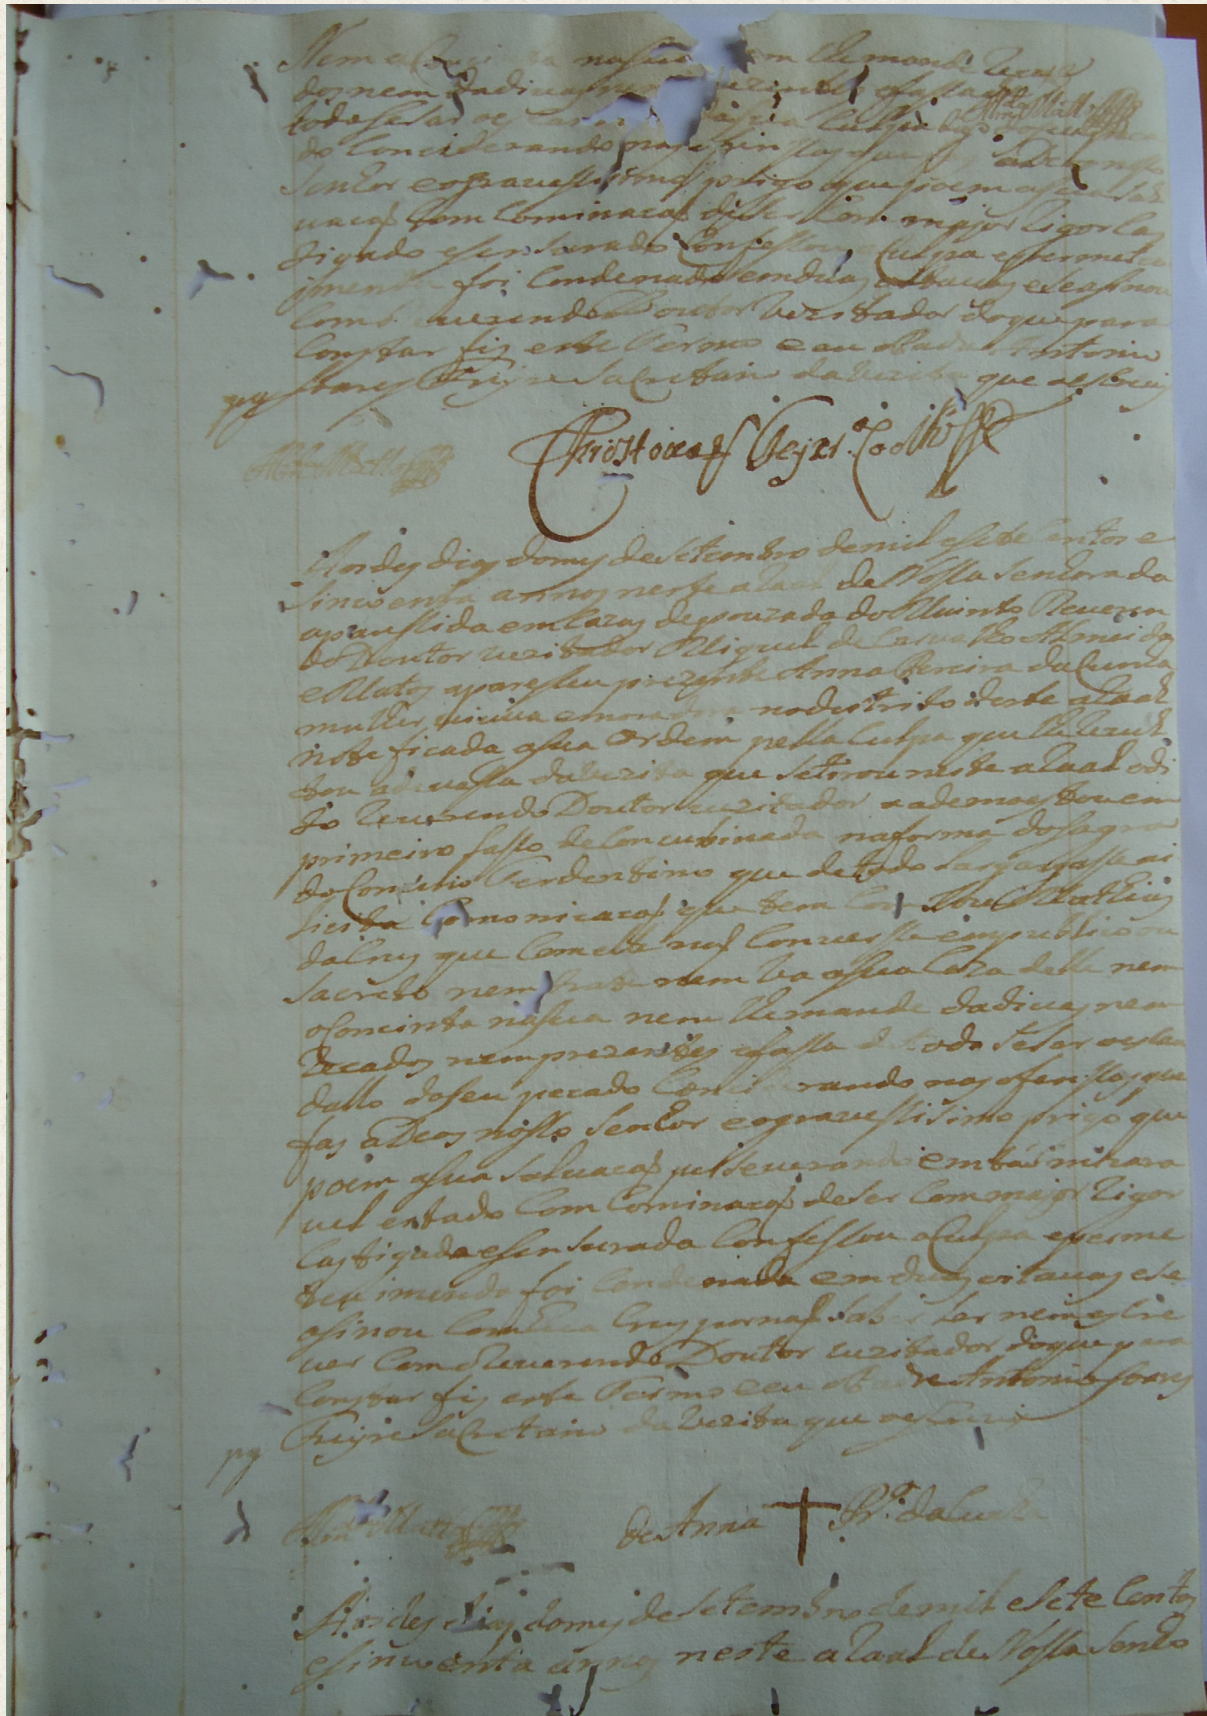 Nem a Concinta na sua nem lhe mande reca
dos nem dadivas nem prezentes e fassa
todo sesar o es culpa
do Conciderando nas ofensas que a Deos nosso
Senhor e o gravessisimo prigo que poem a sua sal
vacaõ com Cominacaõ de ser Com major Rigor Cas
tigado e sensurado Confessou a Culpa e permeteo
imenda foi Condenado em duas oitavas e se asinou
Com o Reverendo Doutor Vezitador do que para
Constar fis este Termo e eu o Padre Antonio
Soares Freyre Sacretario da Vezita que o escrevy
pg
Christovaõ Coelho
Aos des dias do mes de Setembro de mil e sete Centos e
Sincoenta annos neste aRaal de Nossa Senhora da
apareSida em Cazas de pouzada do Muinto Reveren
do Doutor vezitador Miguel de Carvalho Almeida
e Matos apareseu prezente Anna Pereira da Cunha
mulher viuva e moradora no destrito deste aRaal
noteficada a sua Ordem pella Culpa que lhe Rezul
tou a devassa da Vezita que se tirou neste aRaal o di
to Reverendo Doutor vezitador a ademoestou em
primeiro lasso de Concubinada na forma do Sagra
do Concilio Terdentino que de todo largasse a i
licita Comonicacaõ que tem Com Joze Mathias
da Cruz que Com ele naõ Converse em publico ou
Sacreto nem trate nem va a sua Caza delle nem
o Concinta na sua nem lhe mande dadivas nem
Recados nem prezentes e fassa de todo sesar o escan
dallo do seu pecado Conciderando nas ofensas que
fas a Deos nosso Senhor e o gravessisimo prigo que
poem a sua Salvacaõ perseverando em taõ mizara
vel estado Com Cominacaõ de ser Com major Rigor
Castigada e sensurada Confessou a Culpa e perme
teu imenda foi Condenada em duas oitavas e se
asinou Com hua Crus por naõ saber ler nem escre
ver Com o Reverendo Doutor vezitador do que para
Constar fis este Termo e eu o Padre Antonio Soares
Freyre Sacretario da Vezita que o escrevi
pg
de Anna + Pra. da Cunha
Aos des dias do mes de Setembro de mil e Sete Centos
e sincoenta annos neste aRaal de Nossa Senho